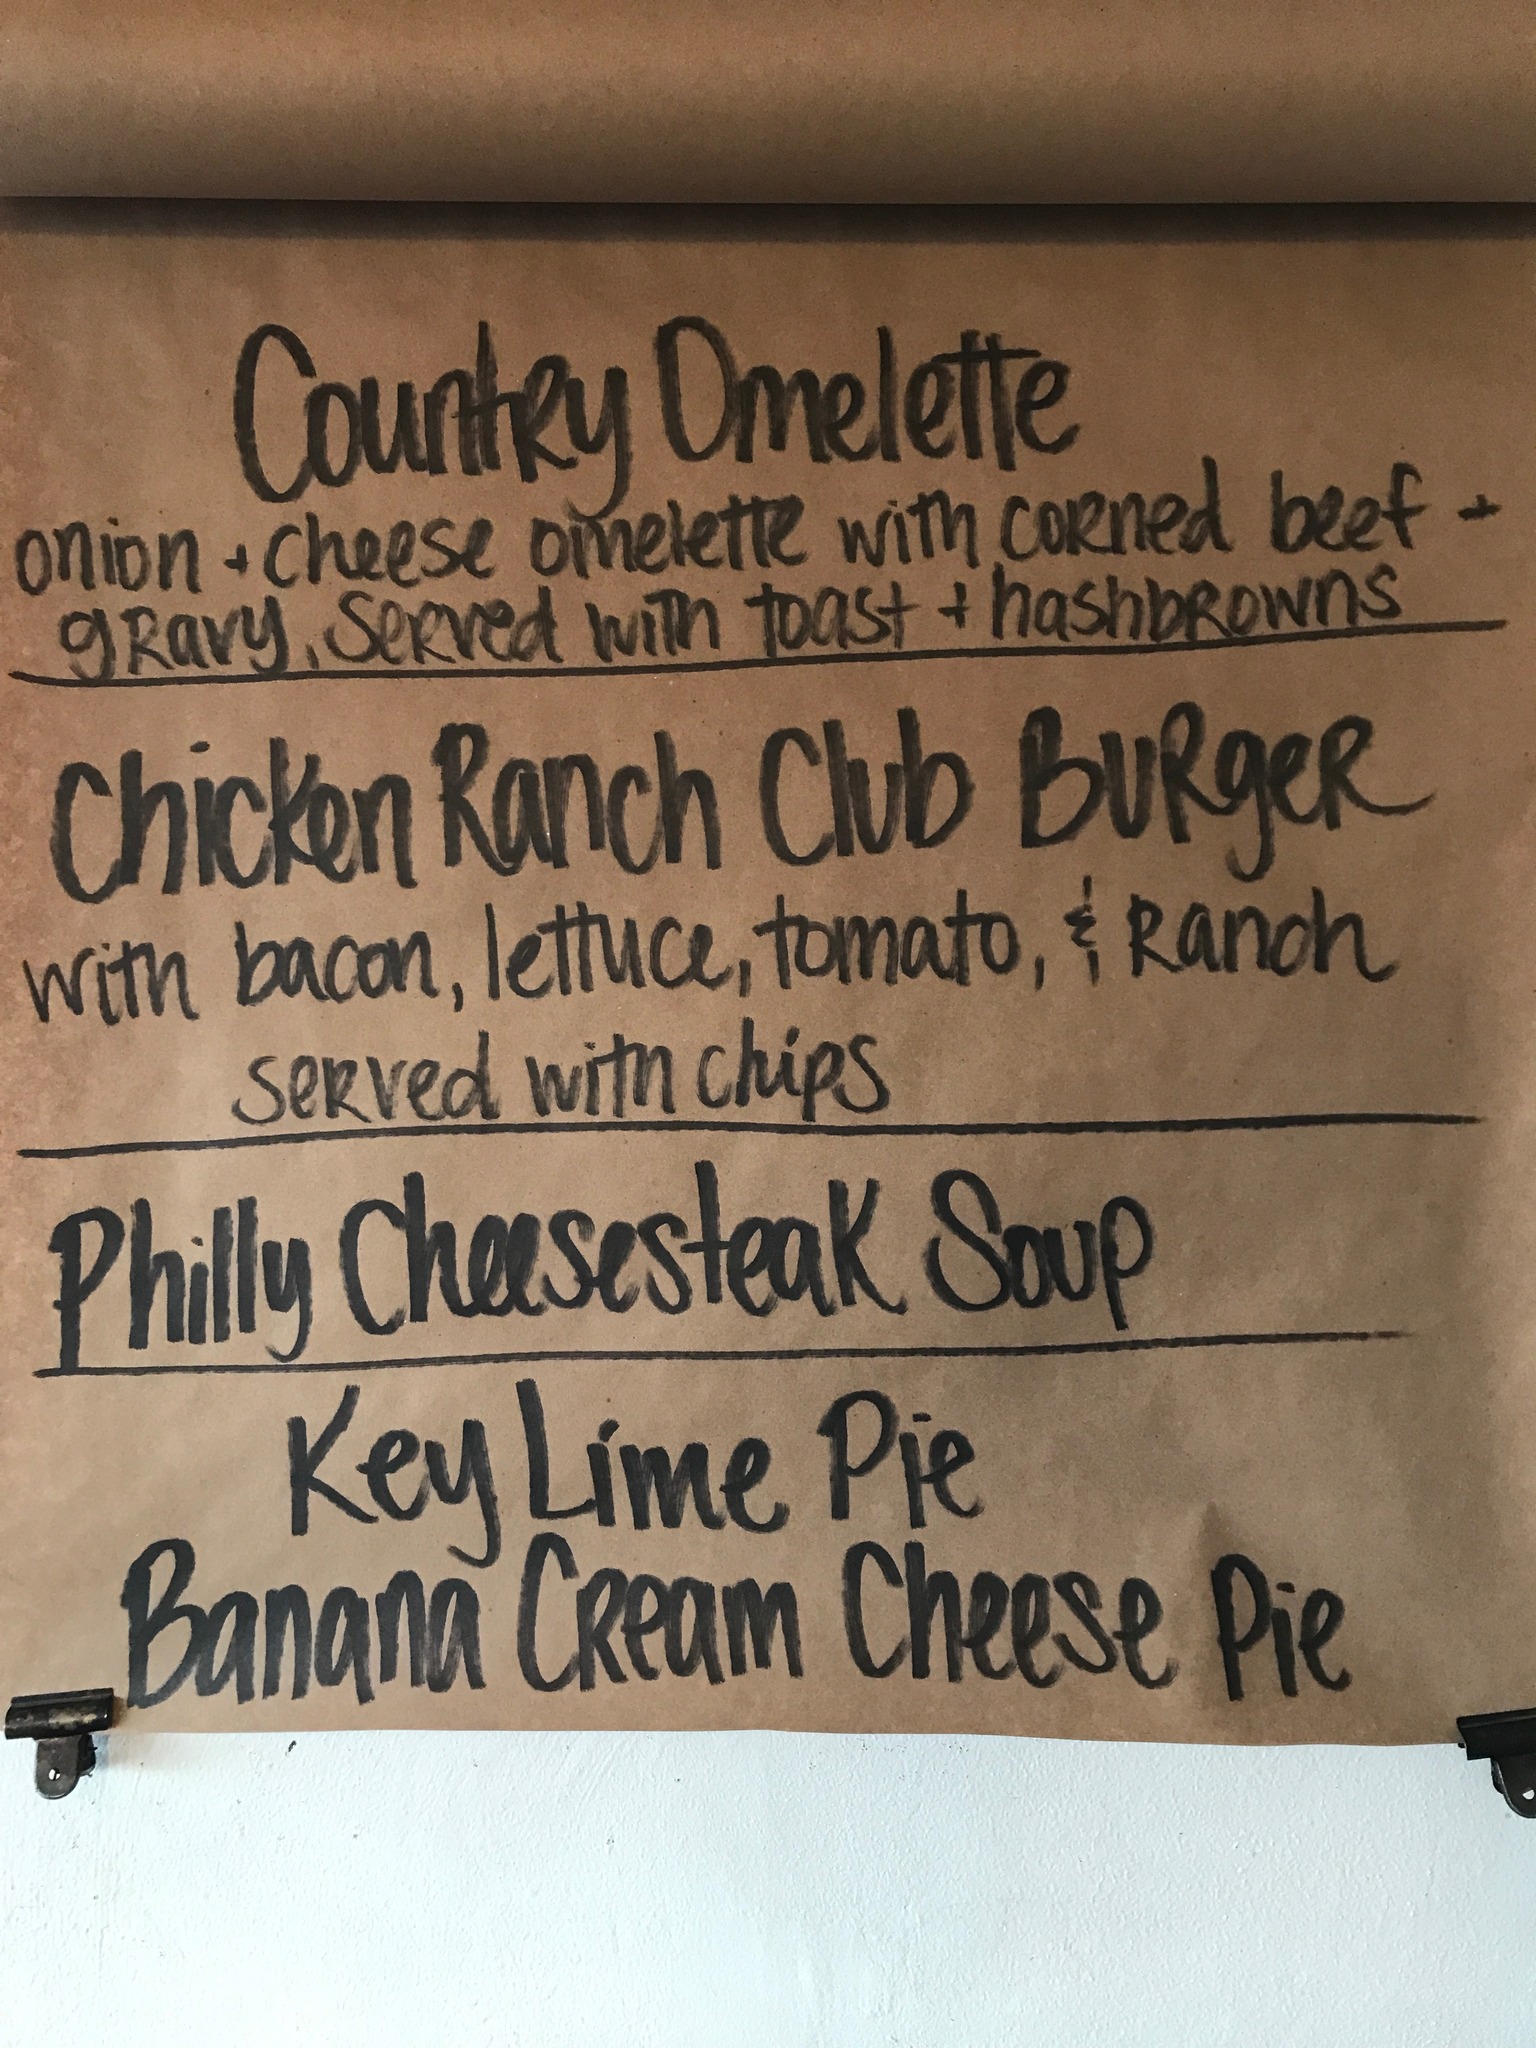 Country Omelette
onion + cheese omelette with corned beef +
gravy. Served with toast + hashbrowns
Chicken Ranch Club Burger
with bacon, lettuce, tomato, & Ranch
served with chips
Philly Cheesesteak Soup
Key Lime Pie
Banana Cream Cheese Pie